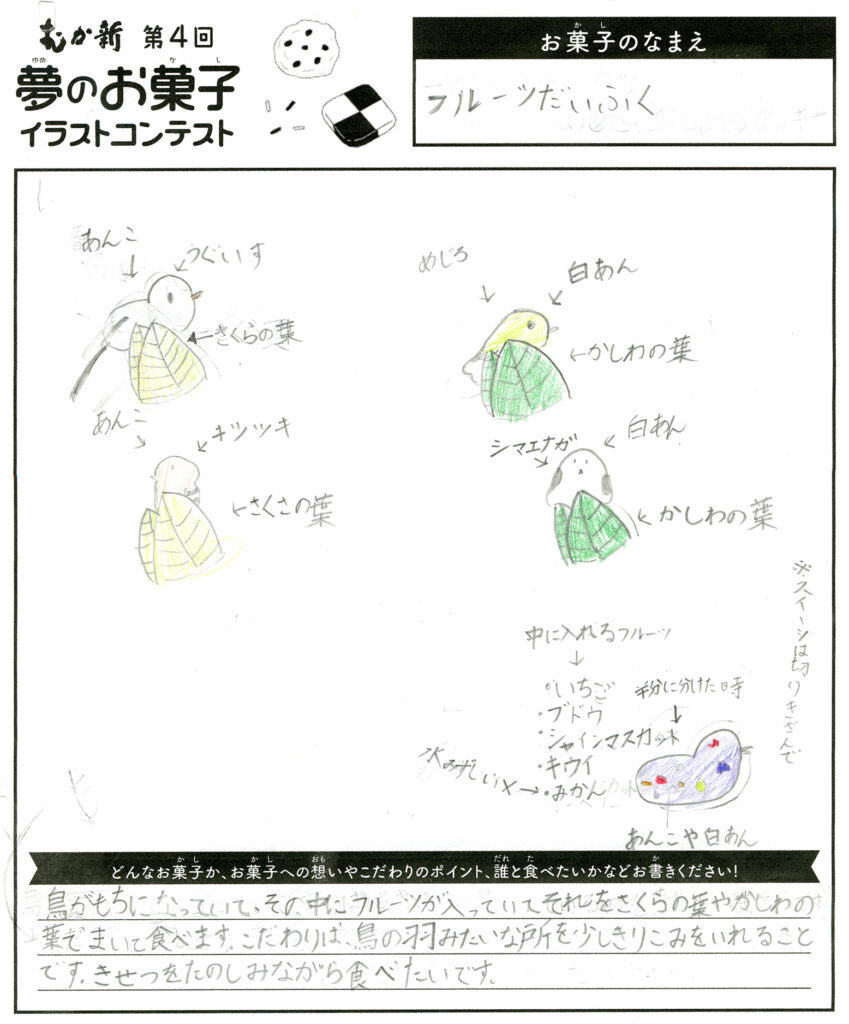 むか新 第4回
夢のお菓子
ゆめ か し
イラストコンテスト
お菓子のなまえ
か し
フルーツだいふく
あんこ
うぐいす
さくらの葉
めじろ
白あん
かしわの葉
あんこ
キツツキ
さくさの葉
シマエナガ
白あん
かしわの葉
※スイーツは切りきざんで
中に入れるフルーツ
・いちご
・ブドウ
・シャインマスカット
・キウイ
・みかん
半分に分けた時
あんこや白あん
どんなお菓子か、お菓子への想いやこだわりのポイント、誰と食べたいかなどお書きください!
か し か し おも だれ た か
鳥がもちになっていて、その中にフルーツが入っていてそれをさくらの葉やかしわの
葉でまいて食べます。こだわりは、鳥の羽みたいな所を少しきりこみをいれること
です。きせつをたのしみながら食べたいです。